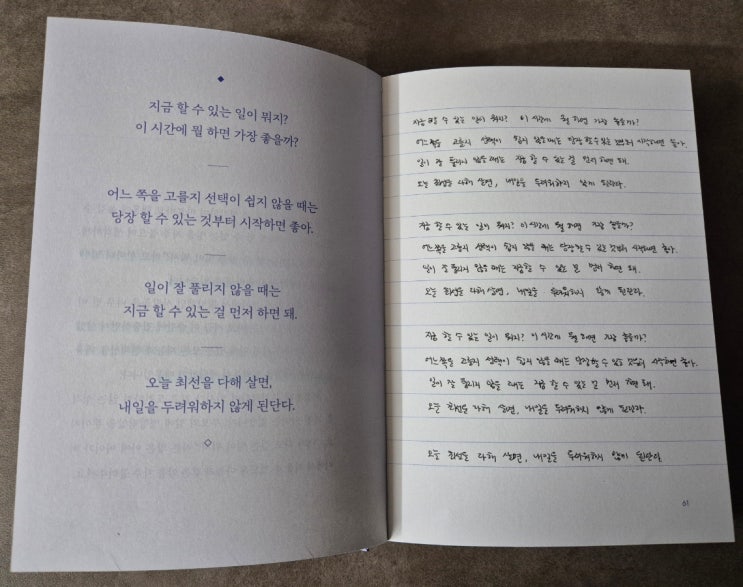 지금 할 수 있는 일이 뭐지?
이 시간에 뭘 하면 가장 좋을까?
어느 쪽을 고를지 선택이 쉽지 않을 때는
당장 할 수 있는 것부터 시작하면 좋아.
일이 잘 풀리지 않을 때는
지금 할 수 있는 걸 먼저 하면 돼.
오늘 최선을 다해 살면,
내일을 두려워하지 않게 된단다.
지금 할 수 있는 일이 뭐지? 이 시간에 뭘 하면 가장 좋을까?
어느 쪽을 고를지 선택이 쉽지 않을 때는 당장 할 수 있는 것부터 시작하면 좋아.
일이 잘 풀리지 않을 때는 지금 할 수 있는 걸 먼저 하면 돼.
오늘 최선을 다해 살면, 내일을 두려워하지 않게 된단다.
지금 할 수 있는 일이 뭐지? 이 시간에 뭘 하면 가장 좋을까?
어느 쪽을 고를지 선택이 쉽지 않을 때는 당장 할 수 있는 것부터 시작하면 좋아.
일이 잘 풀리지 않을 때는 지금 할 수 있는 걸 먼저 하면 돼.
오늘 최선을 다해 살면, 내일을 두려워하지 않게 된단다.
지금 할 수 있는 일이 뭐지? 이 시간에 뭘 하면 가장 좋을까?
어느 쪽을 고를지 선택이 쉽지 않을 때는 당장 할 수 있는 것부터 시작하면 좋아.
일이 잘 풀리지 않을 때는 지금 할 수 있는 걸 먼저 하면 돼.
오늘 최선을 다해 살면, 내일을 두려워하지 않게 된단다.
오늘 최선을 다해 살면, 내일을 두려워하지 않게 된단다.